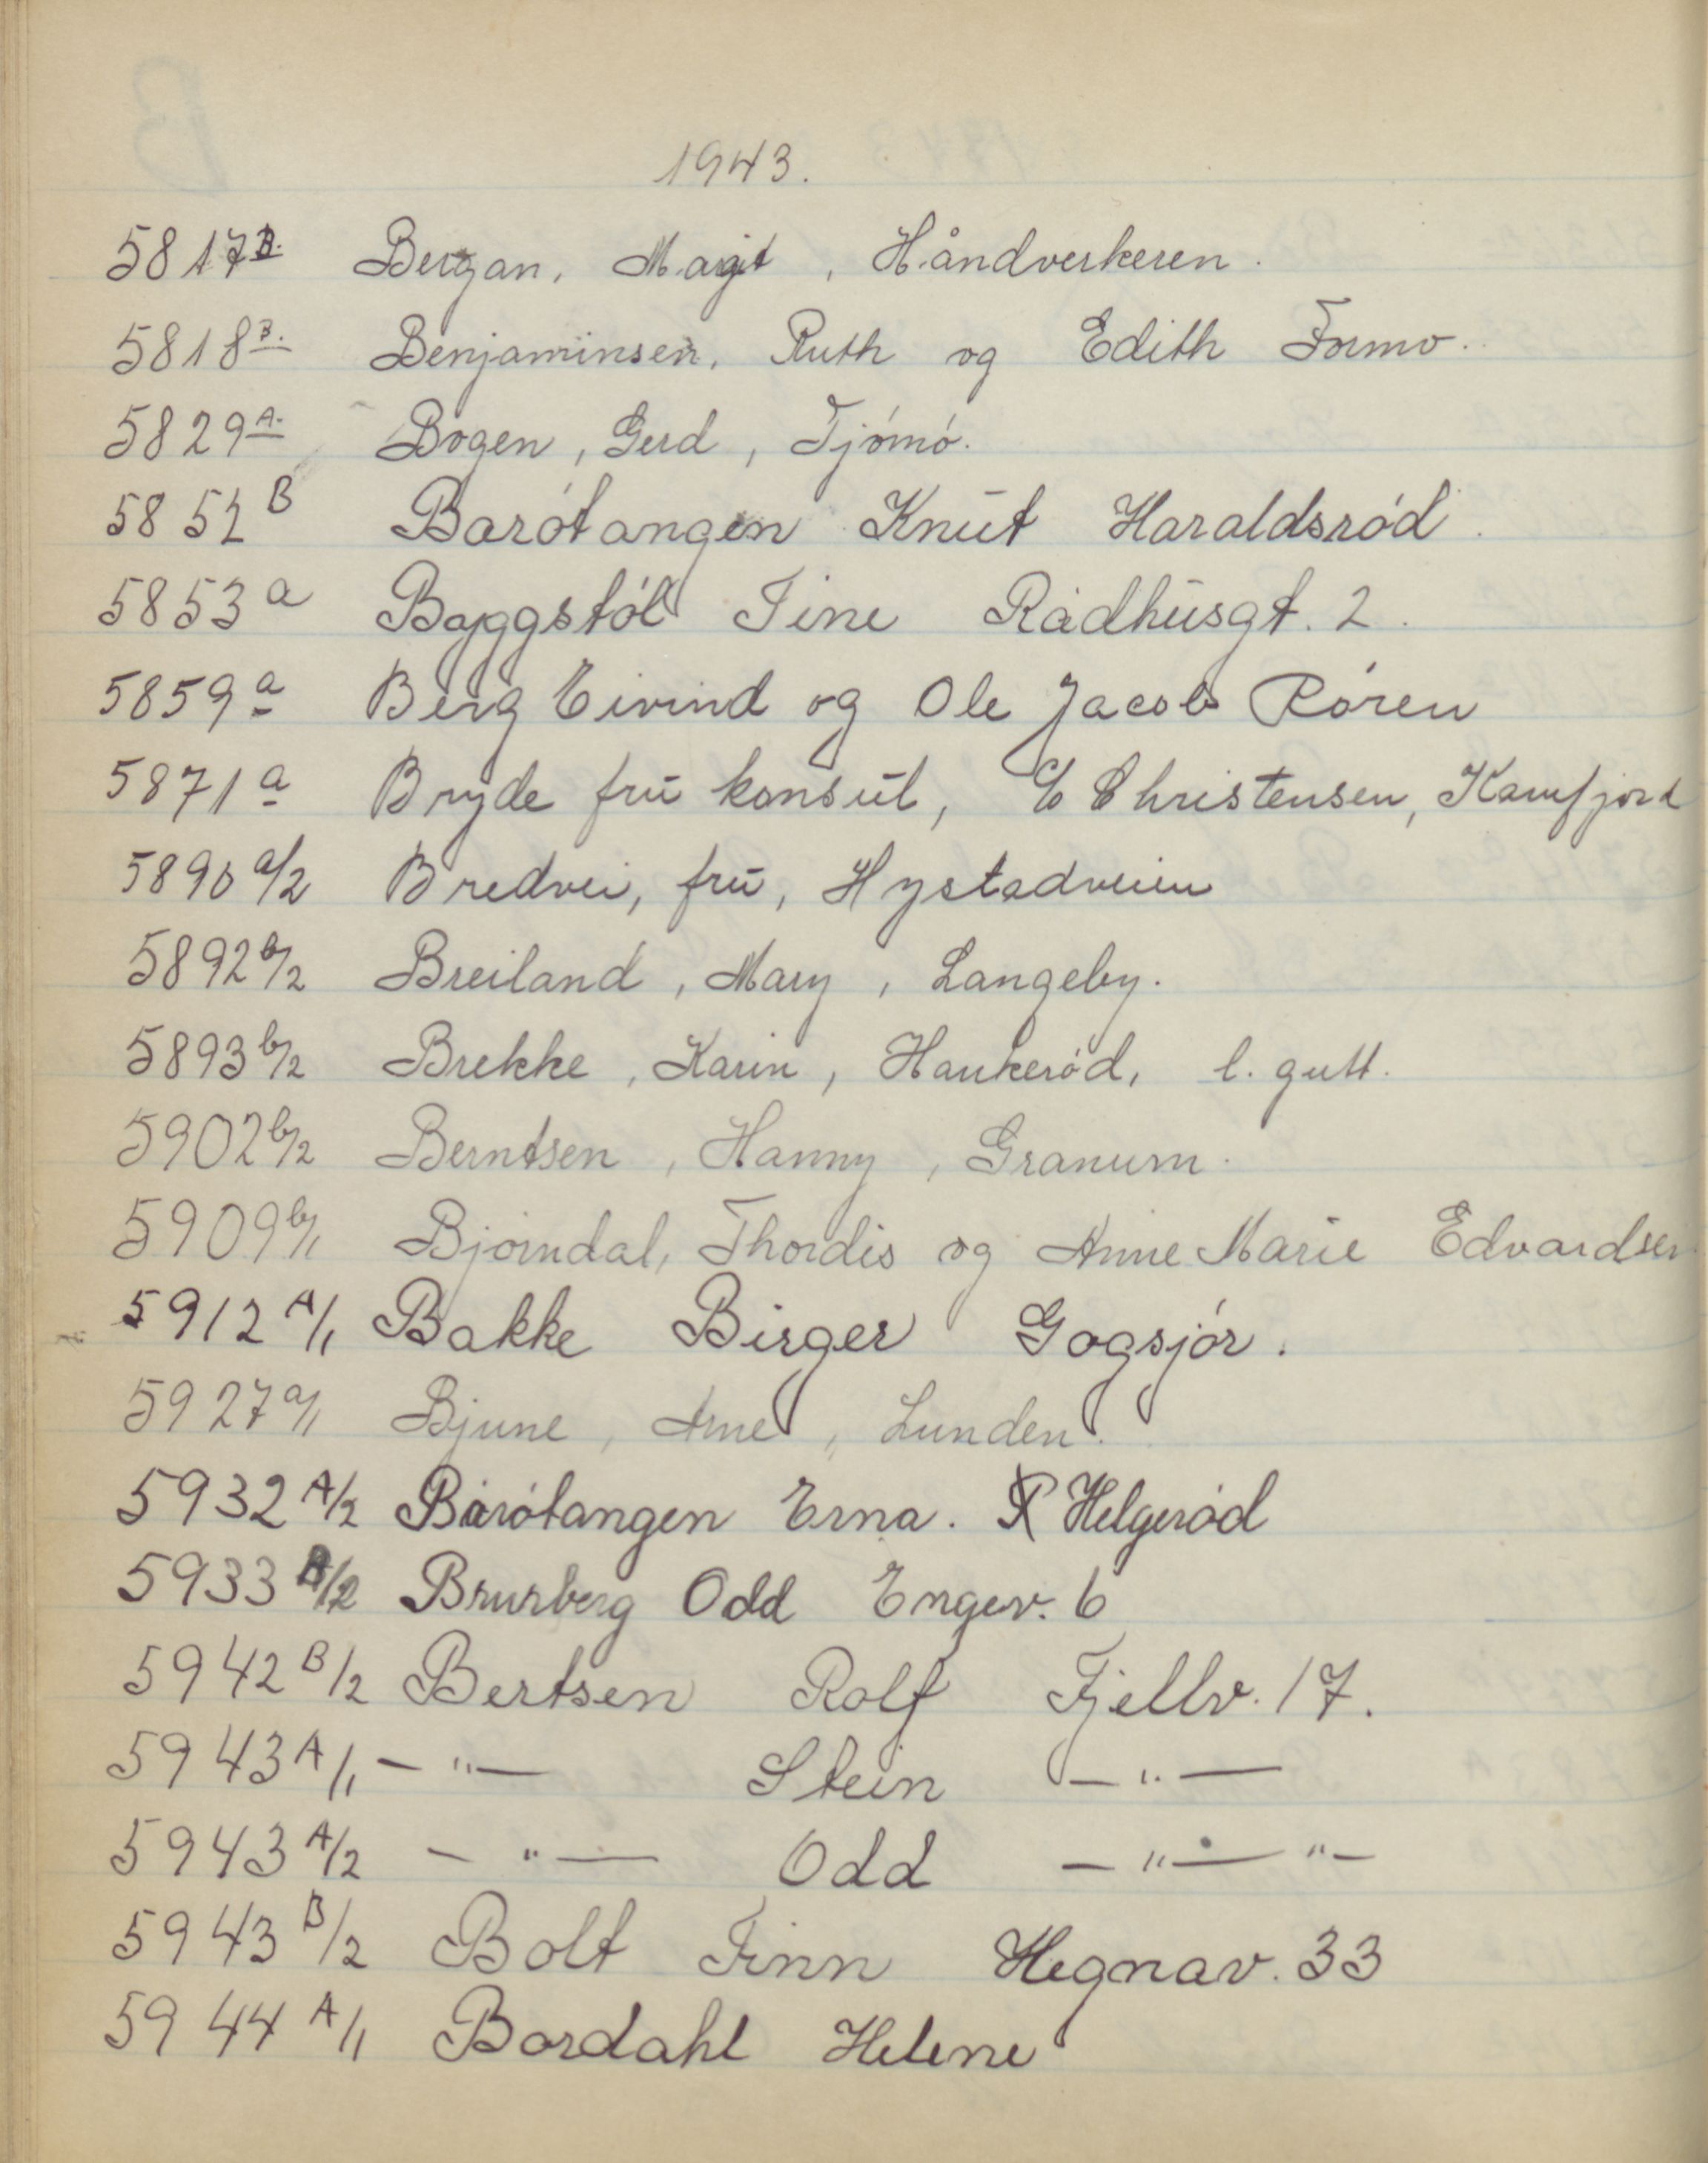 1943.
5817 B. Bergan, Margit, Håndverkeren.
5818 B. Benjaminsen, Ruth og Edith Formo.
5829 A. Bogen, Gerd, Tjómó.
5852 B Barótangen Knut Haraldsród.
5853 a Byggstól Tine Rådhusgt. 2.
5859 a Berg Eivind og Ole Jacob Róren
5871 a Bryde fru konsul, Christensen, Kamfjord
5890 a/2 Bredvei, fru, Hystadveien
5892 b/2 Breiland, Mary, Langeby.
5893 b/2 Brekke, Karin, Haukeród, l. gutt.
5902 b/2 Berntsen, Hanny, Granum.
5909 b/1 Bjórndal, Thordis og Anne Marie Edvardsen
5912 A/1 Bakke Birger Gogsjór.
5927 a/1 Bjune, Arne, Lunden.
5932 A/2 Barótangen Erna. Helgeród
5933 /2 Brurberg Odd Engev. 6
5942 B/2 Bertsen Rolf Fjellv. 17.
5943 A/1 — " — Stein — " —
5943 A/2 — " — Odd — " — " —
5943 B/2 Bolt Finn Hegnav. 33
5944 A/1 Bordahl Helene